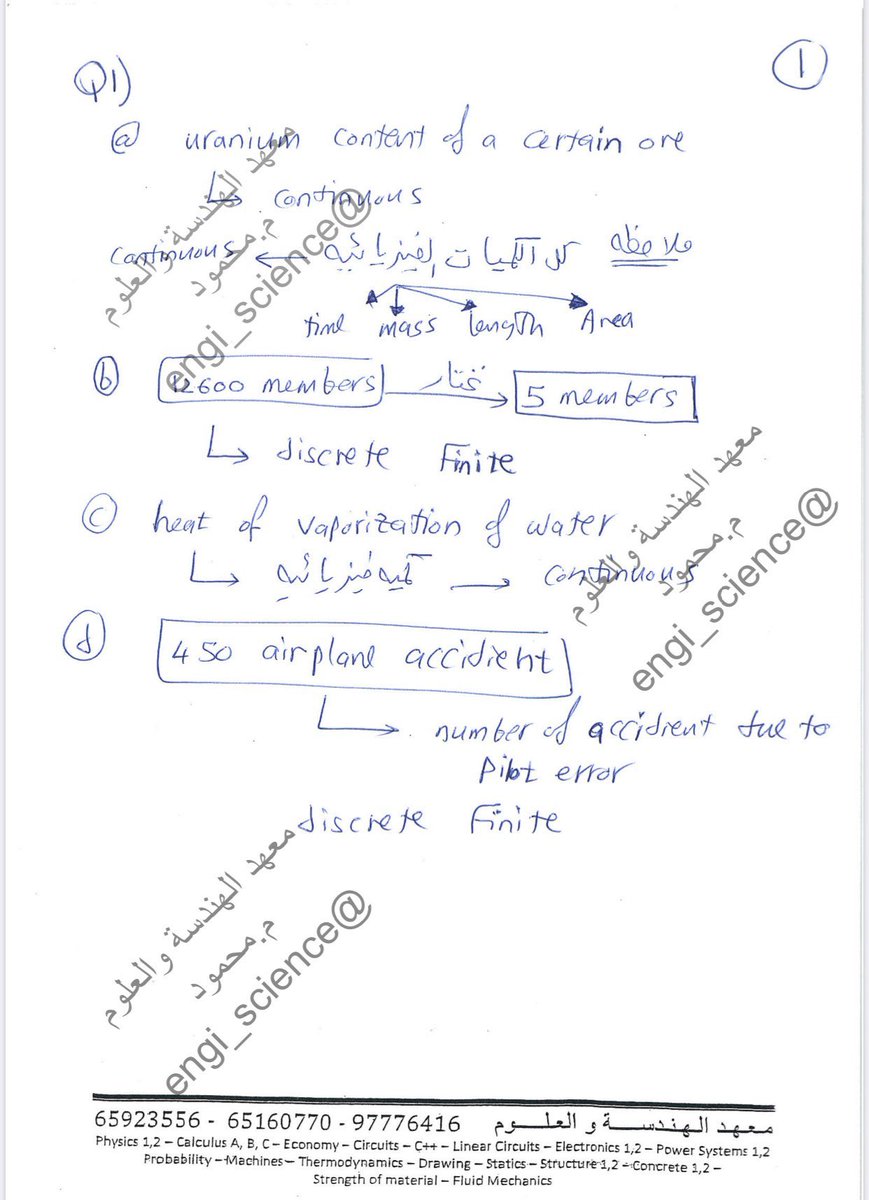 Q1)
1
a uranium content of a certain ore
continuous
ملاحظه كل الكميات الفيزيائيه
continuous
time mass length Area
b 12600 members نختار 5 members
discrete Finite
c heat of vaporization of water
كميه فيزيائيه continuous
d 450 airplane accidient
number of accidient due to
Pilot error
discrete Finite
معهد الهندسة والعلوم
م.محمود
engi_science@
معهد الهندسة والعلوم
م.محمود
engi_science@
معهد الهندسة والعلوم
م.محمود
engi_science@
65923556 - 65160770 - 97776416 معهد الهندســـة و العلــوم
Physics 1,2 – Calculus A, B, C – Economy – Circuits – C++ – Linear Circuits – Electronics 1,2 – Power Systems 1,2
Probability – Machines – Thermodynamics – Drawing – Statics – Structure 1,2 – Concrete 1,2 –
Strength of material – Fluid Mechanics